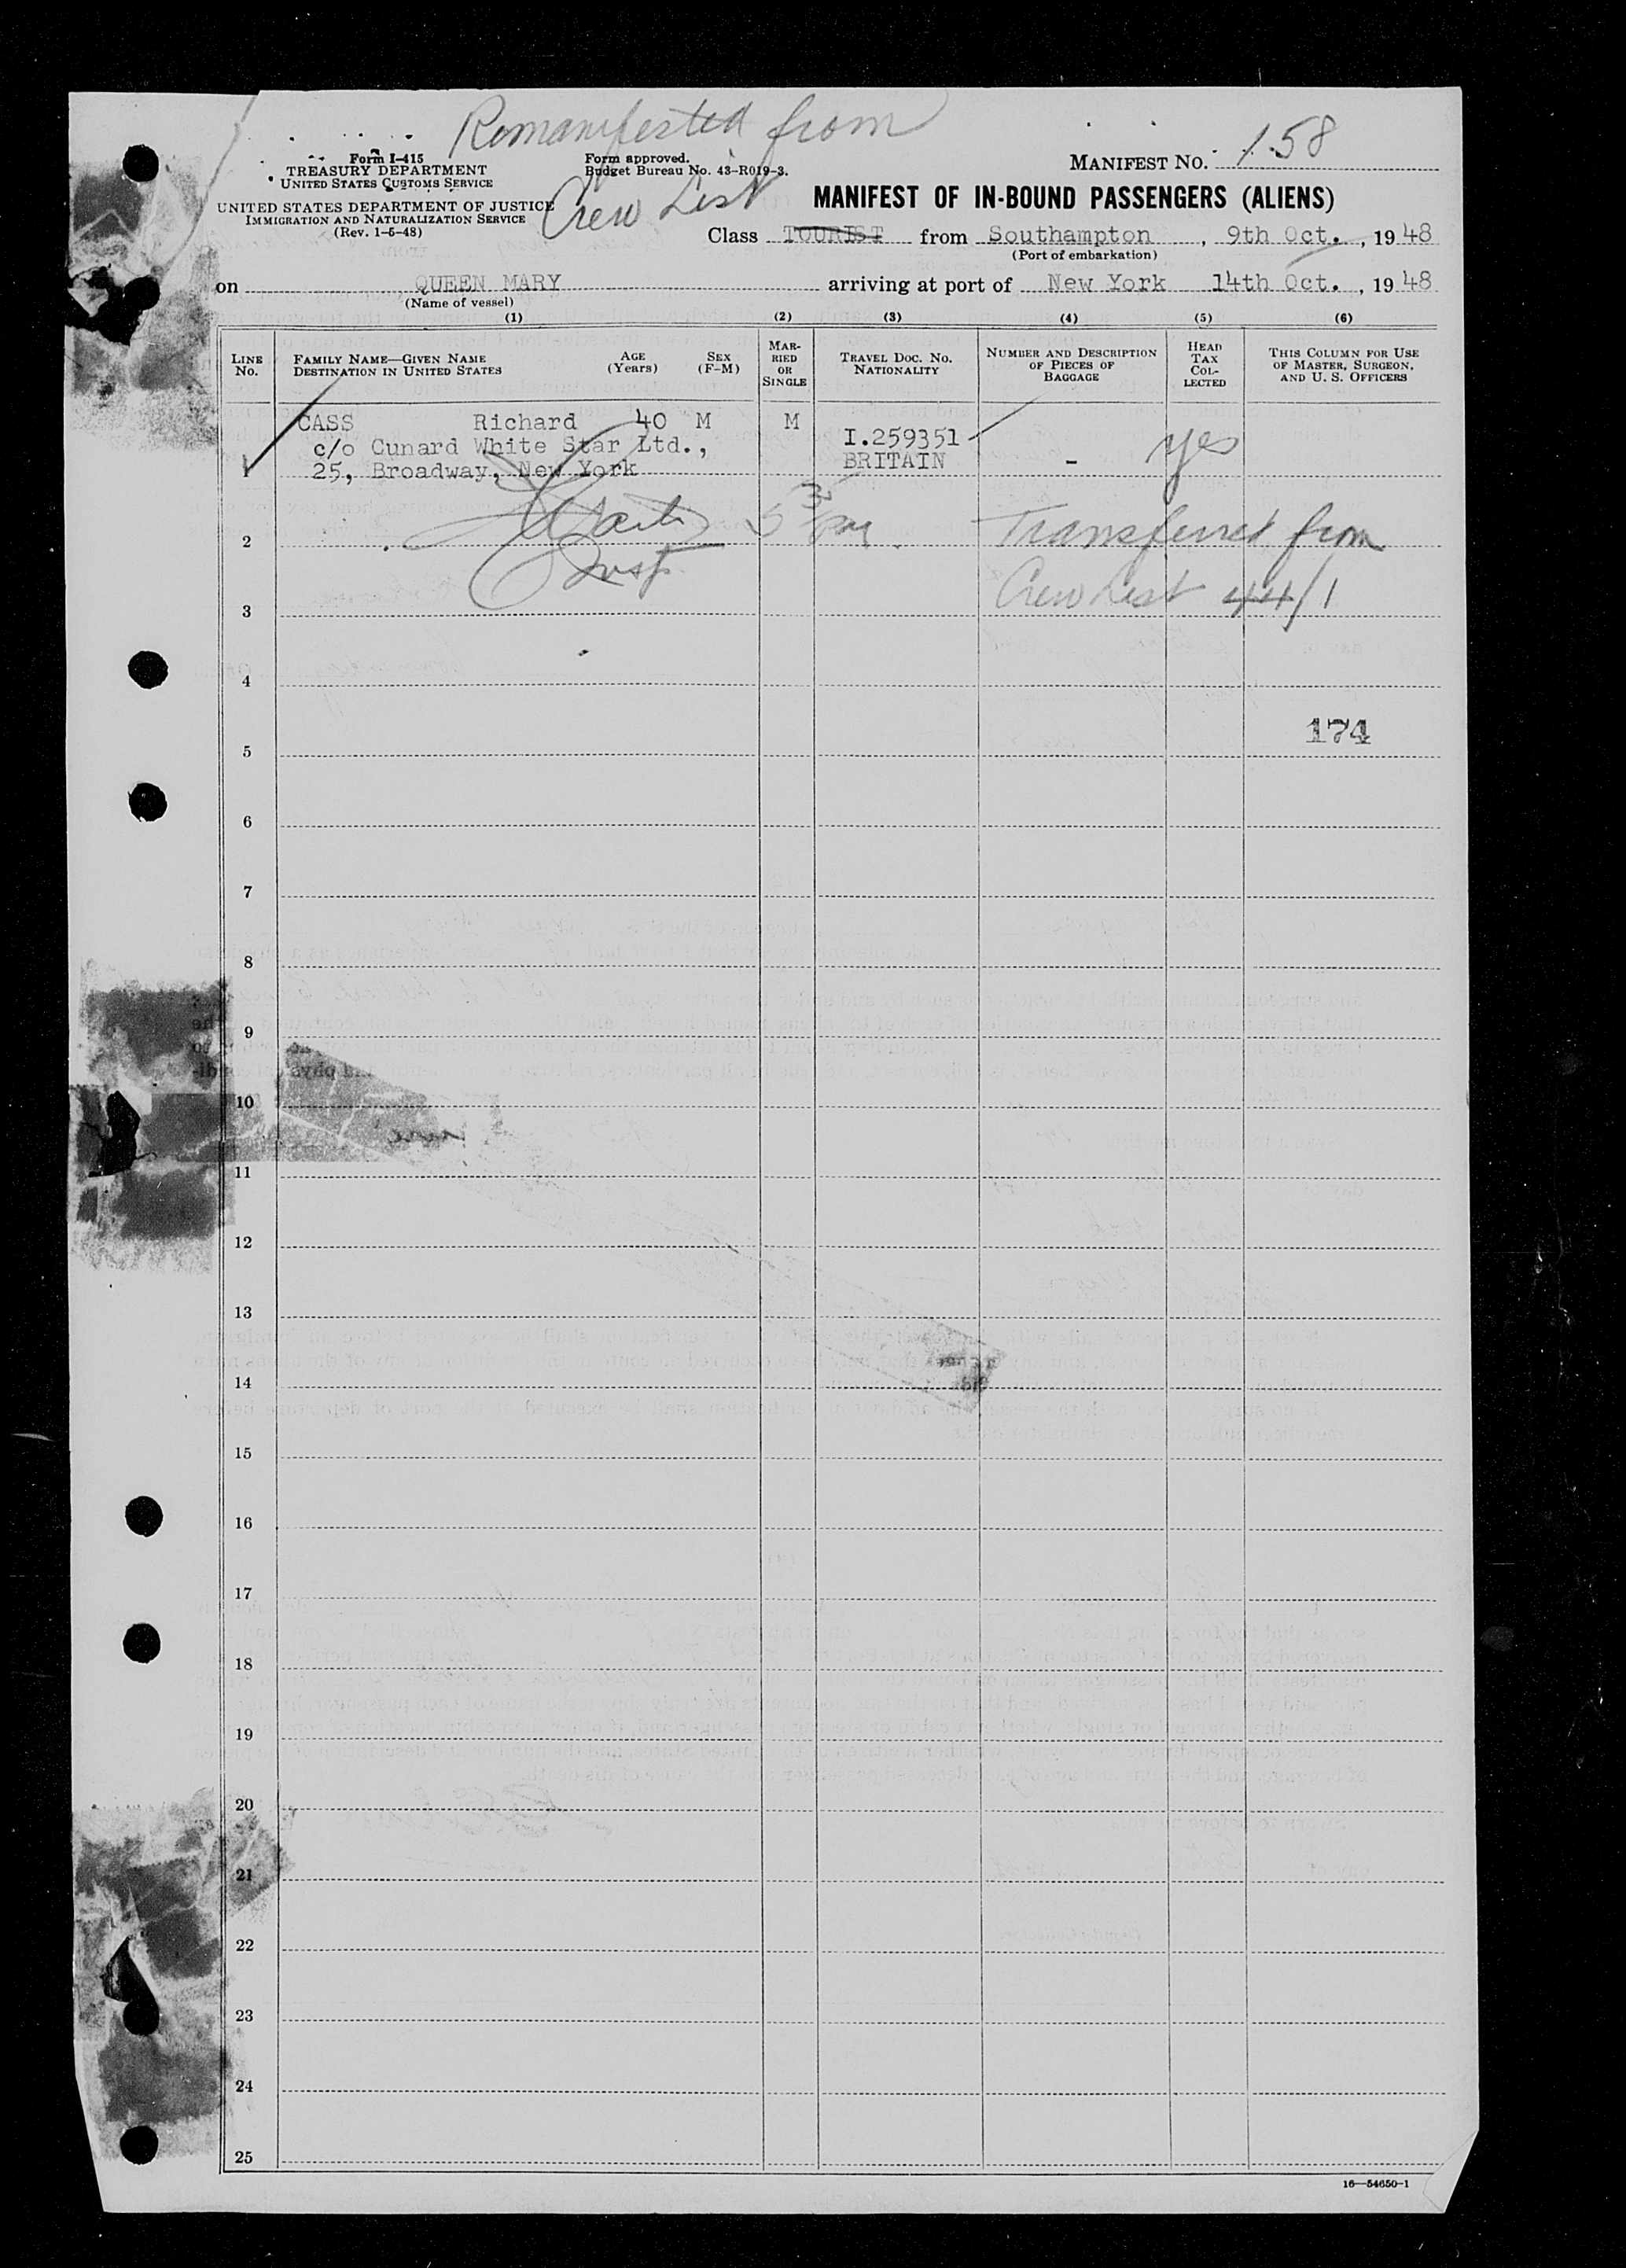 Remanifested from
Crew List
Form I-415
TREASURY DEPARTMENT
UNITED STATES CUSTOMS SERVICE
UNITED STATES DEPARTMENT OF JUSTICE
IMMIGRATION AND NATURALIZATION SERVICE
(Rev. 1-5-48)
Form approved.
Budget Bureau No. 43-R019-3.
MANIFEST NO. 158
MANIFEST OF IN-BOUND PASSENGERS (ALIENS)
Class TOURIST from Southampton, 9th Oct., 1948
(Port of embarkation)
on QUEEN MARY arriving at port of New York 14th Oct., 1948
(Name of vessel)
(1) (2) (3) (4) (5) (6)
LINE No.
FAMILY NAME—GIVEN NAME
DESTINATION IN UNITED STATES
AGE (Years)
SEX (F-M)
MARRIED OR SINGLE
TRAVEL DOC. NO.
NATIONALITY
NUMBER AND DESCRIPTION OF PIECES OF BAGGAGE
HEAD TAX COLLECTED
THIS COLUMN FOR USE OF MASTER, SURGEON, AND U. S. OFFICERS
CASS Richard 40 M M
c/o Cunard White Star Ltd.,
1 25, Broadway, New York
I.259351
BRITAIN
-
yes
2 Transferred from
Insp.
3 Crew List 44/1
4
174
5
6
7
8
9
10
11
12
13
14
15
16
17
18
19
20
21
22
23
24
25
16—54650-1